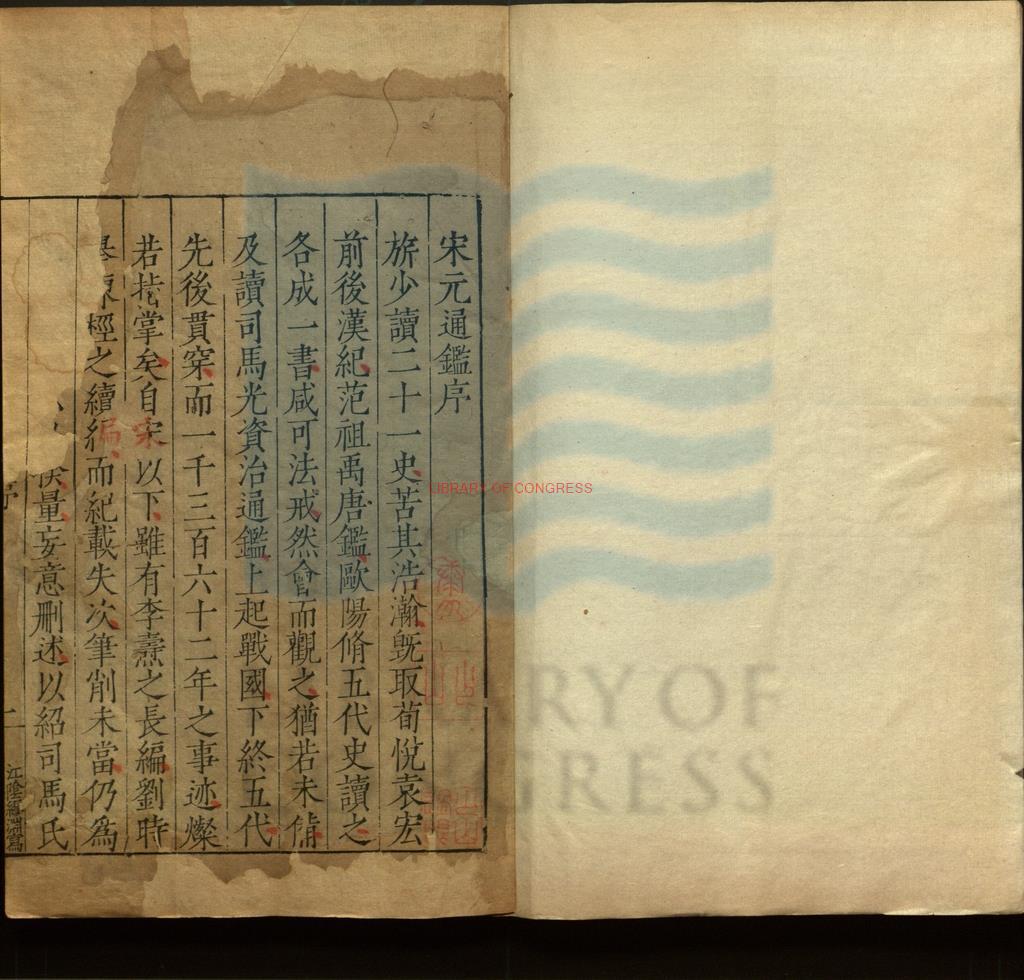 宋元通鑑序
旂少讀二十一史苦其浩瀚旣取荀悅袁宏
前後漢紀范祖禹唐鑑歐陽脩五代史讀之
各成一書咸可法戒然會而觀之猶若未備
及讀司馬光資治通鑑上起戰國下終五代
先後貫穿而一千三百六十二年之事迹燦
若指掌矣自宋以下雖有李燾之長編劉時
陳桱之續編而紀載失次筆削未當仍爲
量妄意刪述以紹司馬氏
序
一
LIBRARY OF CONGRESS